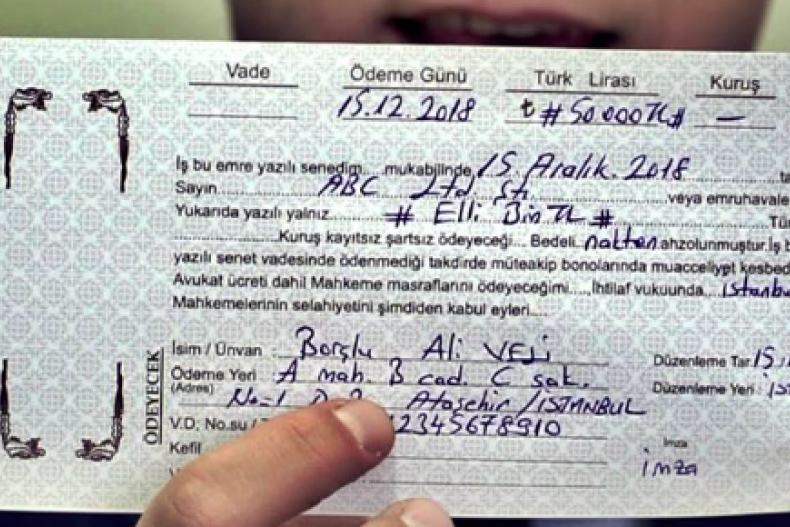 Vade Ödeme Günü Türk Lirası Kuruş
15.12.2018 ₺ #50000TL# —
İş bu emre yazılı senedim....mukabilinde 15 Aralık. 2018
Sayın ABC Ltd. Şti. veya emruhavale
Yukarıda yazılı yalnız # Elli Bin TL #
Kuruş kayıtsız şartsız ödeyeceği... Bedeli nakten ahzolunmuştur. İş b
yazılı senet vadesinde ödenmediği takdirde müteakip bonolarında muacceliyet kesbed
Avukat ücreti dahil Mahkeme masraflarını ödeyeceğimi.....İhtilaf vukuunda istanbu
Mahkemelerinin selahiyetini şimdiden kabul eyleri....
ÖDEYECEK
İsim / Ünvan Borçlu Ali VELİ Düzenleme Tar. 15.
Ödeme Yeri A mah. B cad. C sok. Düzenleme Yeri : İS
(Adres) No=1 Ataşehir/İSTANBUL
V.D. No.su / 12345678910
Kefil İmza
imza